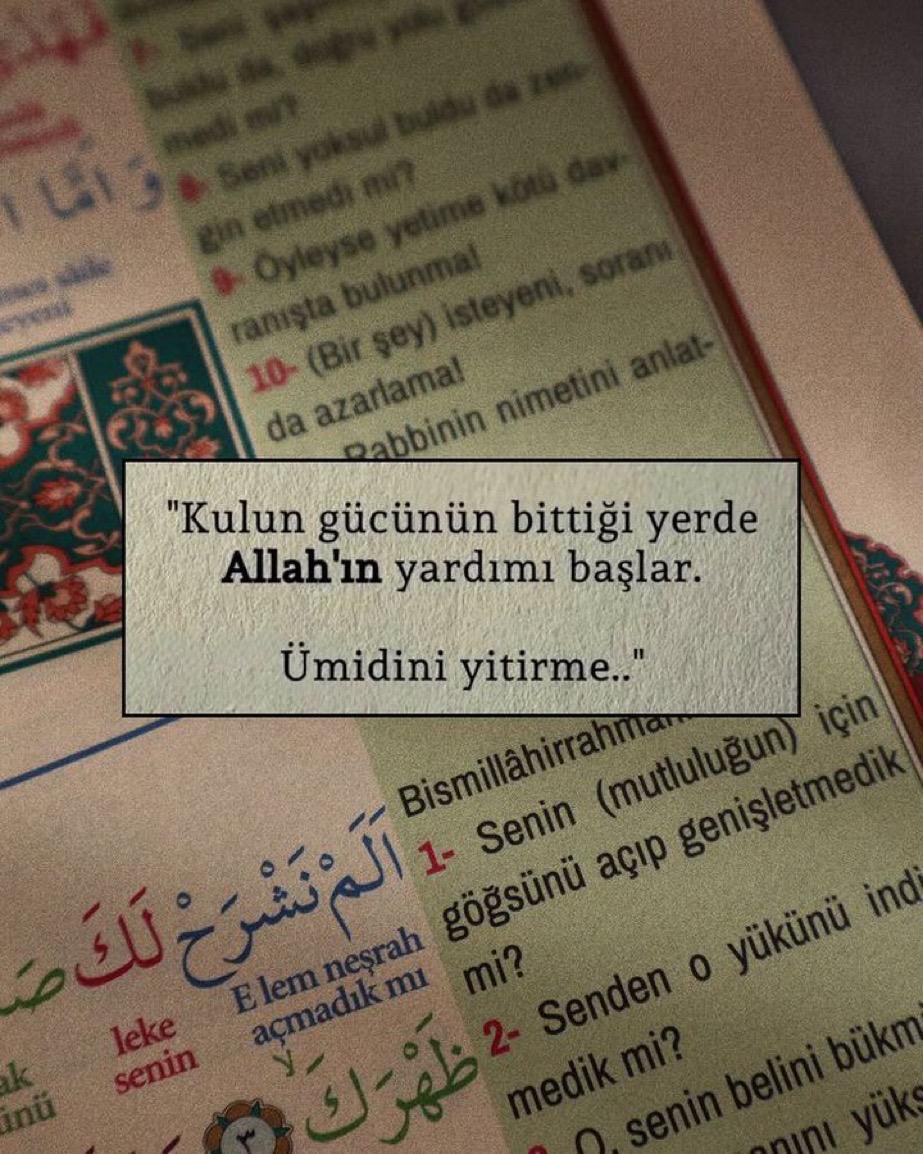 buldu da, doğru yolu
medi mi?
8- Seni yoksul buldu da zen-
gin etmedi mi?
9- Öyleyse yetime kötü dav-
ranışta bulunma!
10- (Bir şey) isteyeni, soranı
da azarlama!
Rabbinin nimetini anlat-
وَاَمَّا
"Kulun gücünün bittiği yerde
Allah'ın yardımı başlar.
Ümidini yitirme.."
1- Senin (mutluluğun) için
göğsünü açıp genişletmedik
mi?
2- Senden o yükünü indi
medik mi?
O, senin belini bükm
اَلَمْ نَشْرَحْ لَكَ صَ
E lem neşrah
leke
açmadık mı
senin
ظَهْرَكَ
٣